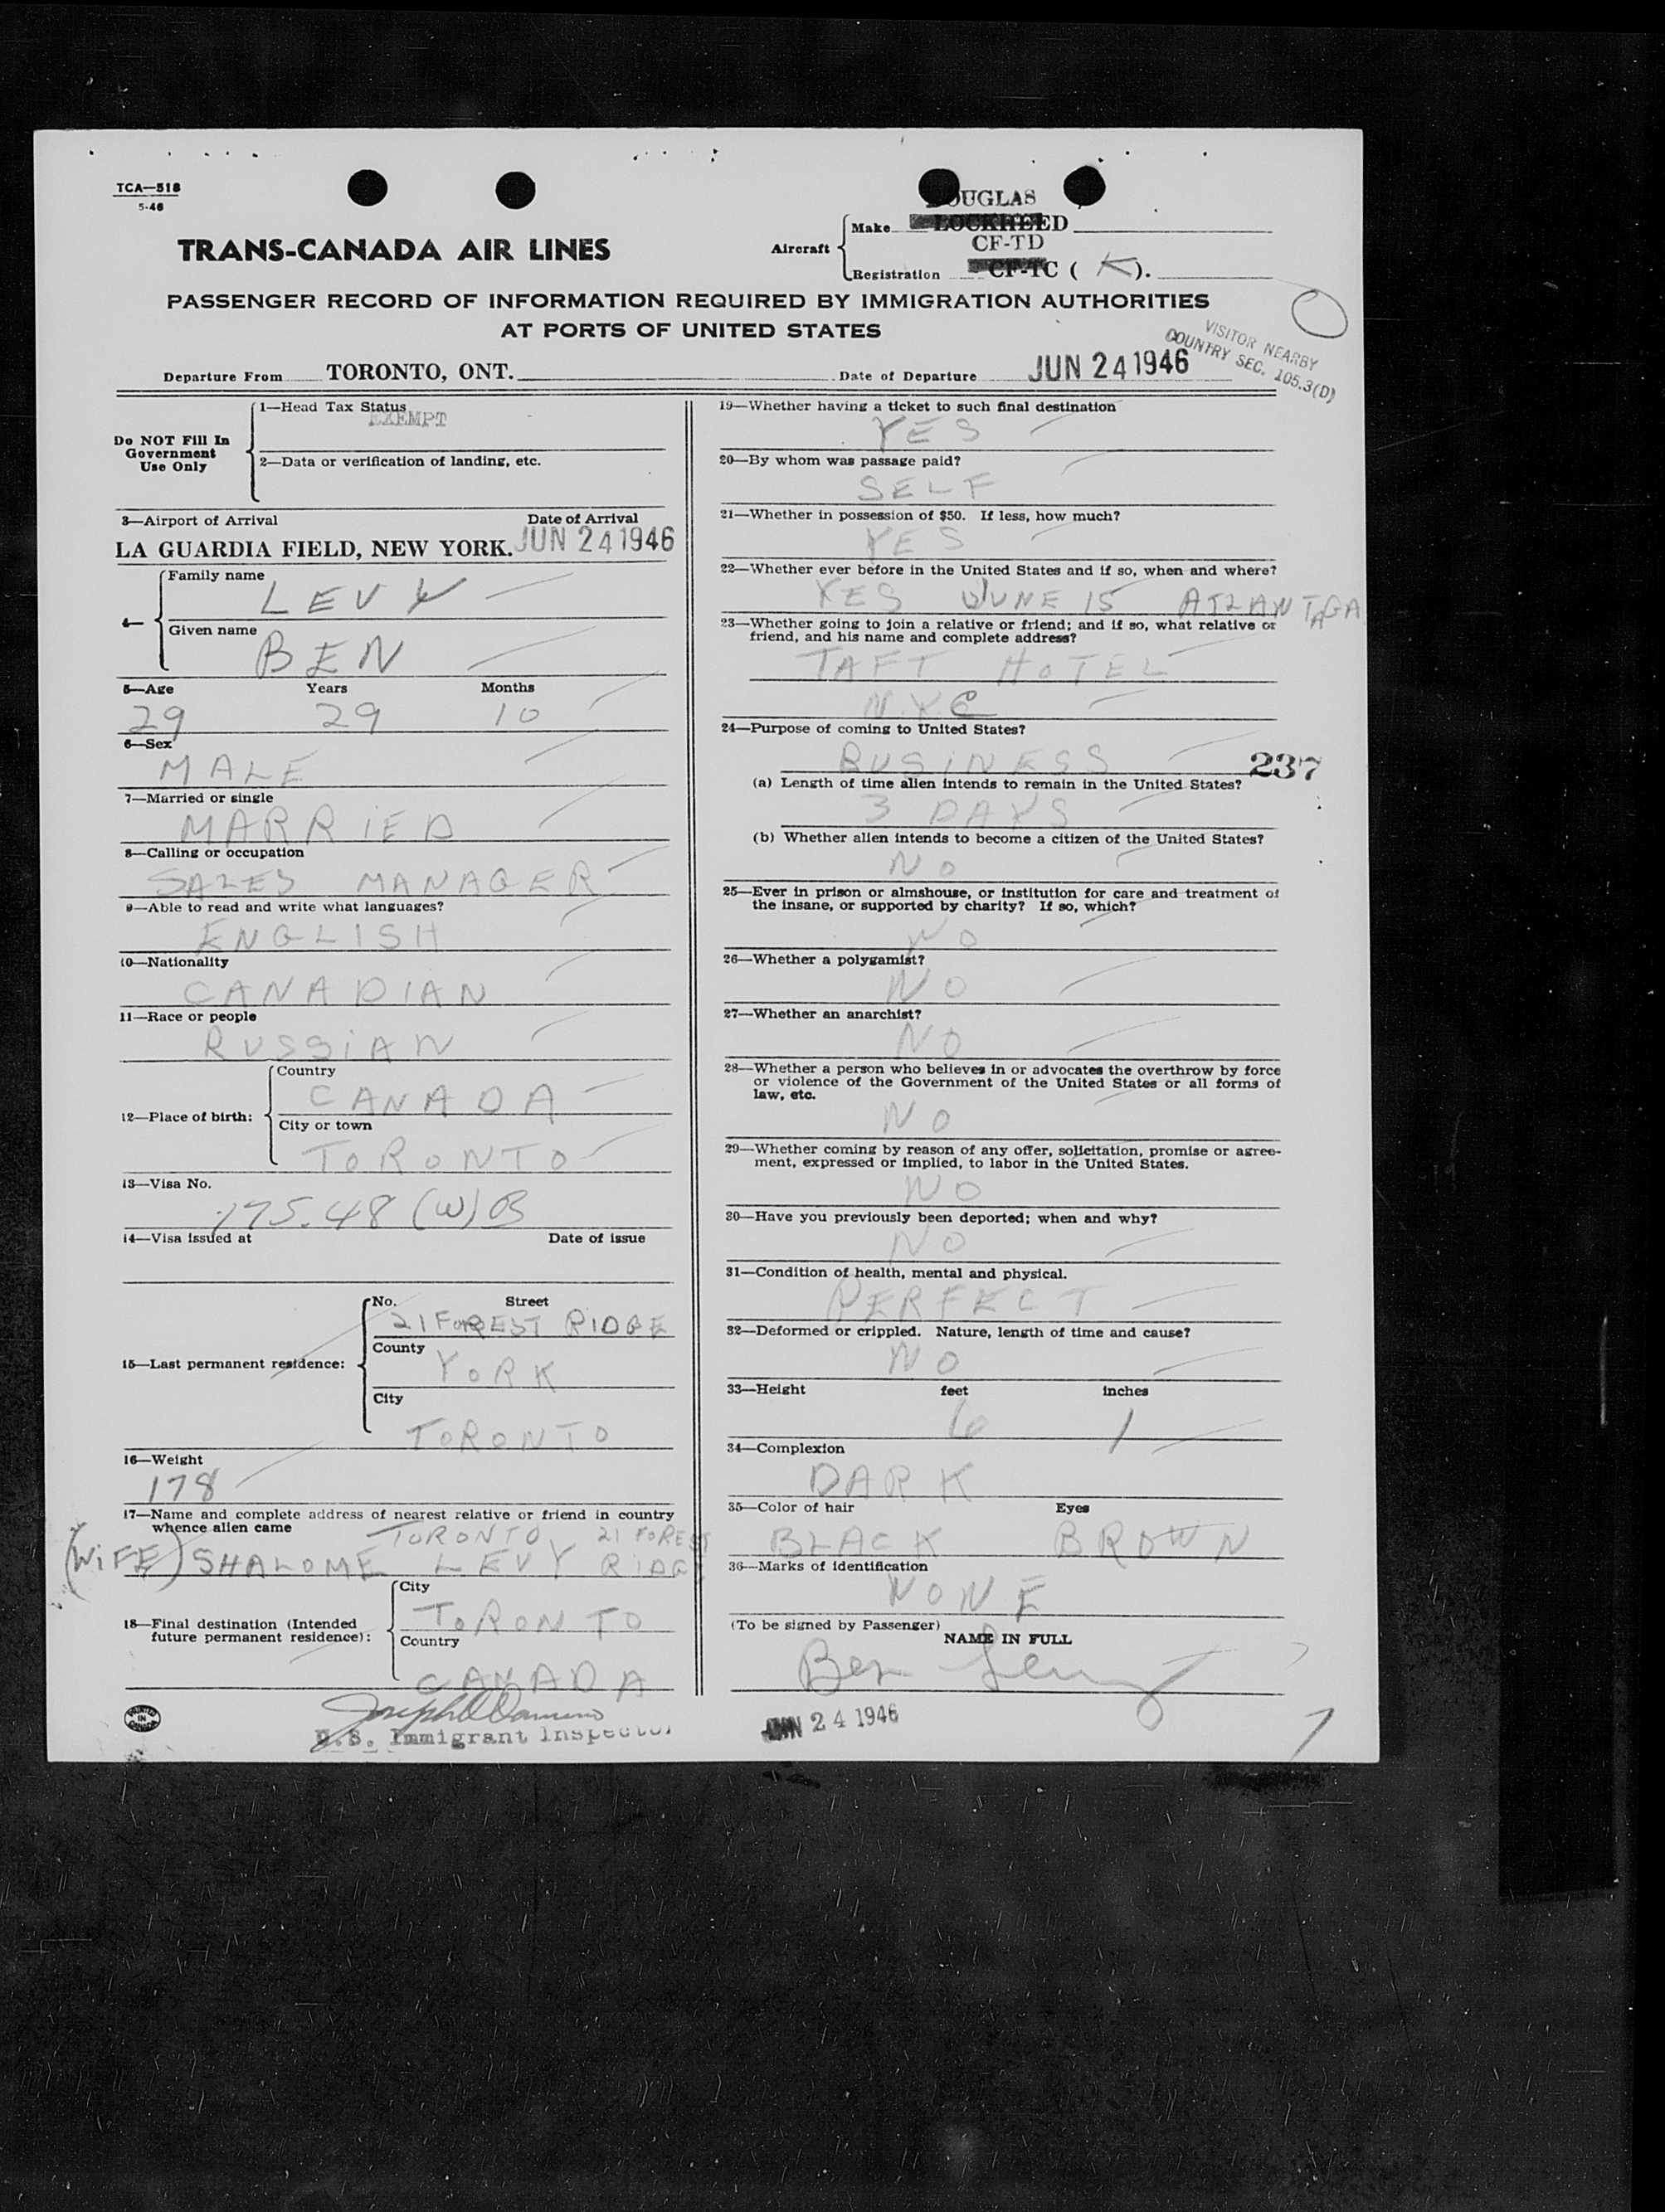 TCA—518
5-46
DOUGLAS
Make LOCKHEED
TRANS-CANADA AIR LINES
Aircraft
CF-TD
Registration CF-TC ( K ).
PASSENGER RECORD OF INFORMATION REQUIRED BY IMMIGRATION AUTHORITIES
AT PORTS OF UNITED STATES
VISITOR NEARBY
COUNTRY SEC. 105.3(D)
Departure From TORONTO, ONT. Date of Departure JUN 24 1946
Do NOT Fill In
Government
Use Only
1—Head Tax Status
EXEMPT
2—Data or verification of landing, etc.
3—Airport of Arrival Date of Arrival
LA GUARDIA FIELD, NEW YORK. JUN 24 1946
4—
Family name
LEVY
Given name
BEN
5—Age Years Months
29 29 10
6—Sex
MALE
7—Married or single
MARRIED
8—Calling or occupation
SALES MANAGER
9—Able to read and write what languages?
ENGLISH
10—Nationality
CANADIAN
11—Race or people
RUSSIAN
12—Place of birth:
Country
CANADA
City or town
TORONTO
13—Visa No.
175.48 (W) B
14—Visa issued at Date of issue
15—Last permanent residence:
No. Street
21 FOREST RIDGE
County
YORK
City
TORONTO
16—Weight
178
17—Name and complete address of nearest relative or friend in country
whence alien came
TORONTO 21 FOREST
(WIFE) SHALOME LEVY RIDGE
18—Final destination (Intended
future permanent residence):
City
TORONTO
Country
CANADA
U.S. Immigrant Inspector
PRINTED
IN
CANADA
19—Whether having a ticket to such final destination
YES
20—By whom was passage paid?
SELF
21—Whether in possession of $50. If less, how much?
YES
22—Whether ever before in the United States and if so, when and where?
YES JUNE 15 ATLANTA GA
23—Whether going to join a relative or friend; and if so, what relative or
friend, and his name and complete address?
TAFT HOTEL
N.Y.C
24—Purpose of coming to United States?
BUSINESS
237
(a) Length of time alien intends to remain in the United States?
3 DAYS
(b) Whether alien intends to become a citizen of the United States?
NO
25—Ever in prison or almshouse, or institution for care and treatment of
the insane, or supported by charity? If so, which?
NO
26—Whether a polygamist?
NO
27—Whether an anarchist?
NO
28—Whether a person who believes in or advocates the overthrow by force
or violence of the Government of the United States or all forms of
law, etc.
NO
29—Whether coming by reason of any offer, solicitation, promise or agree-
ment, expressed or implied, to labor in the United States.
NO
30—Have you previously been deported; when and why?
NO
31—Condition of health, mental and physical.
PERFECT
32—Deformed or crippled. Nature, length of time and cause?
NO
33—Height feet inches
6 1
34—Complexion
DARK
35—Color of hair Eyes
BLACK BROWN
36—Marks of identification
NONE
(To be signed by Passenger)
NAME IN FULL
Ben Levy
JUN 24 1946